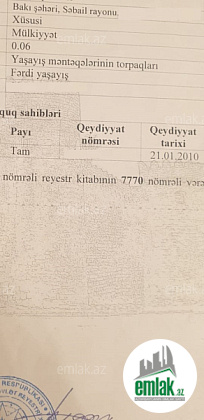 Bakı şəhəri, Səbail rayonu
Xüsusi
Mülkiyyət
0.06
Yaşayış məntəqələrinin torpaqları
Fərdi yaşayış
quq sahibləri
Payı Qeydiyyat nömrəsi Qeydiyyat tarixi
Tam 21.01.2010
nömrəli reyestr kitabının 7770 nömrəli vərə
emlak.az
RESPUBLİKASI
emlak.az